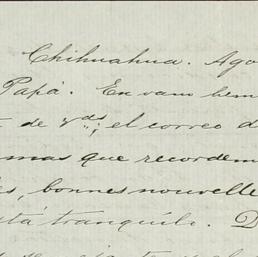 Chihuahua. Ago
Papá. En vano hem
de vds; el correo d
mas que recordem
es, bonnes nouvelle
stá tranquilo. D